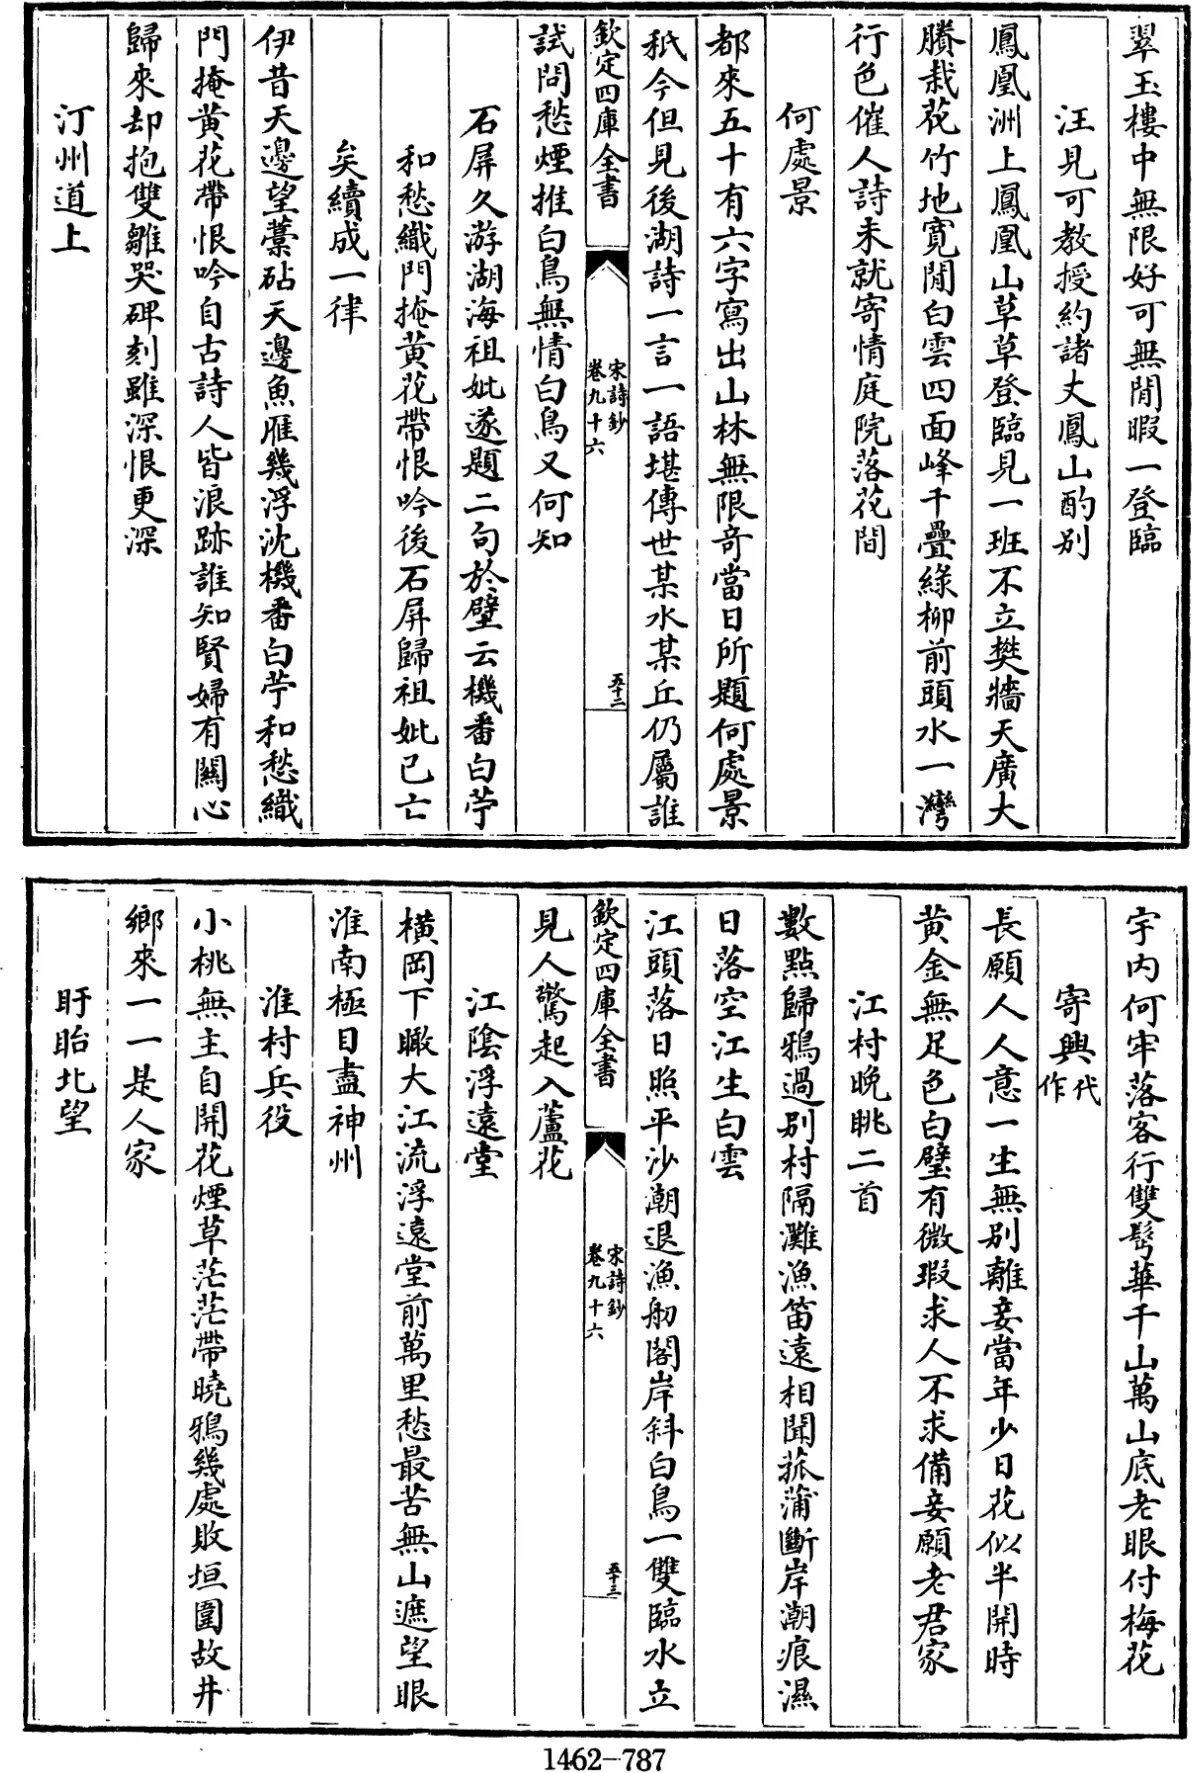 翠玉樓中無限好可無閒暇一登臨
汪見可教授約諸丈鳳山酌别
鳳凰洲上鳳凰山草草登臨見一班不立樊牆天廣大
賸栽花竹地寬閒白雲四面峰千疊綠柳前頭水一灣
行色催人詩未就寄情庭院落花間
何處景
都來五十有六字寫出山林無限奇當日所題何處景
秖今但見後湖詩一言一語堪傳世某水某丘仍屬誰
欽定四庫全書
宋詩鈔
卷九十六
五十二
試問愁煙推白鳥無情白鳥又何知
石屏久游湖海祖妣遂題二句於壁云機番白苧
和愁織門掩黄花帶恨吟後石屏歸祖妣已亡
矣續成一律
伊昔天邊望藁砧天邊魚雁幾浮沈機番白苧和愁織
門掩黄花帶恨吟自古詩人皆浪跡誰知賢婦有關心
歸來却抱雙雛哭碑刻雖深恨更深
汀州道上
宇内何牢落客行雙鬂華千山萬山底老眼付梅花
寄興代作
長願人人意一生無别離妾當年少日花似半開時
黄金無足色白璧有微瑕求人不求備妾願老君家
江村晚眺二首
數點歸鴉過别村隔灘漁笛遠相聞菰蒲斷岸潮痕濕
日落空江生白雲
江頭落日照平沙潮退漁舠閣岸斜白鳥一雙臨水立
欽定四庫全書
宋詩鈔
卷九十六
五十三
見人驚起入蘆花
江陰浮遠堂
橫岡下瞰大江流浮遠堂前萬里愁最苦無山遮望眼
淮南極目盡神州
淮村兵役
小桃無主自開花煙草茫茫帶曉鴉幾處敗垣圍故井
鄉來一一是人家
盱眙北望
1462-787